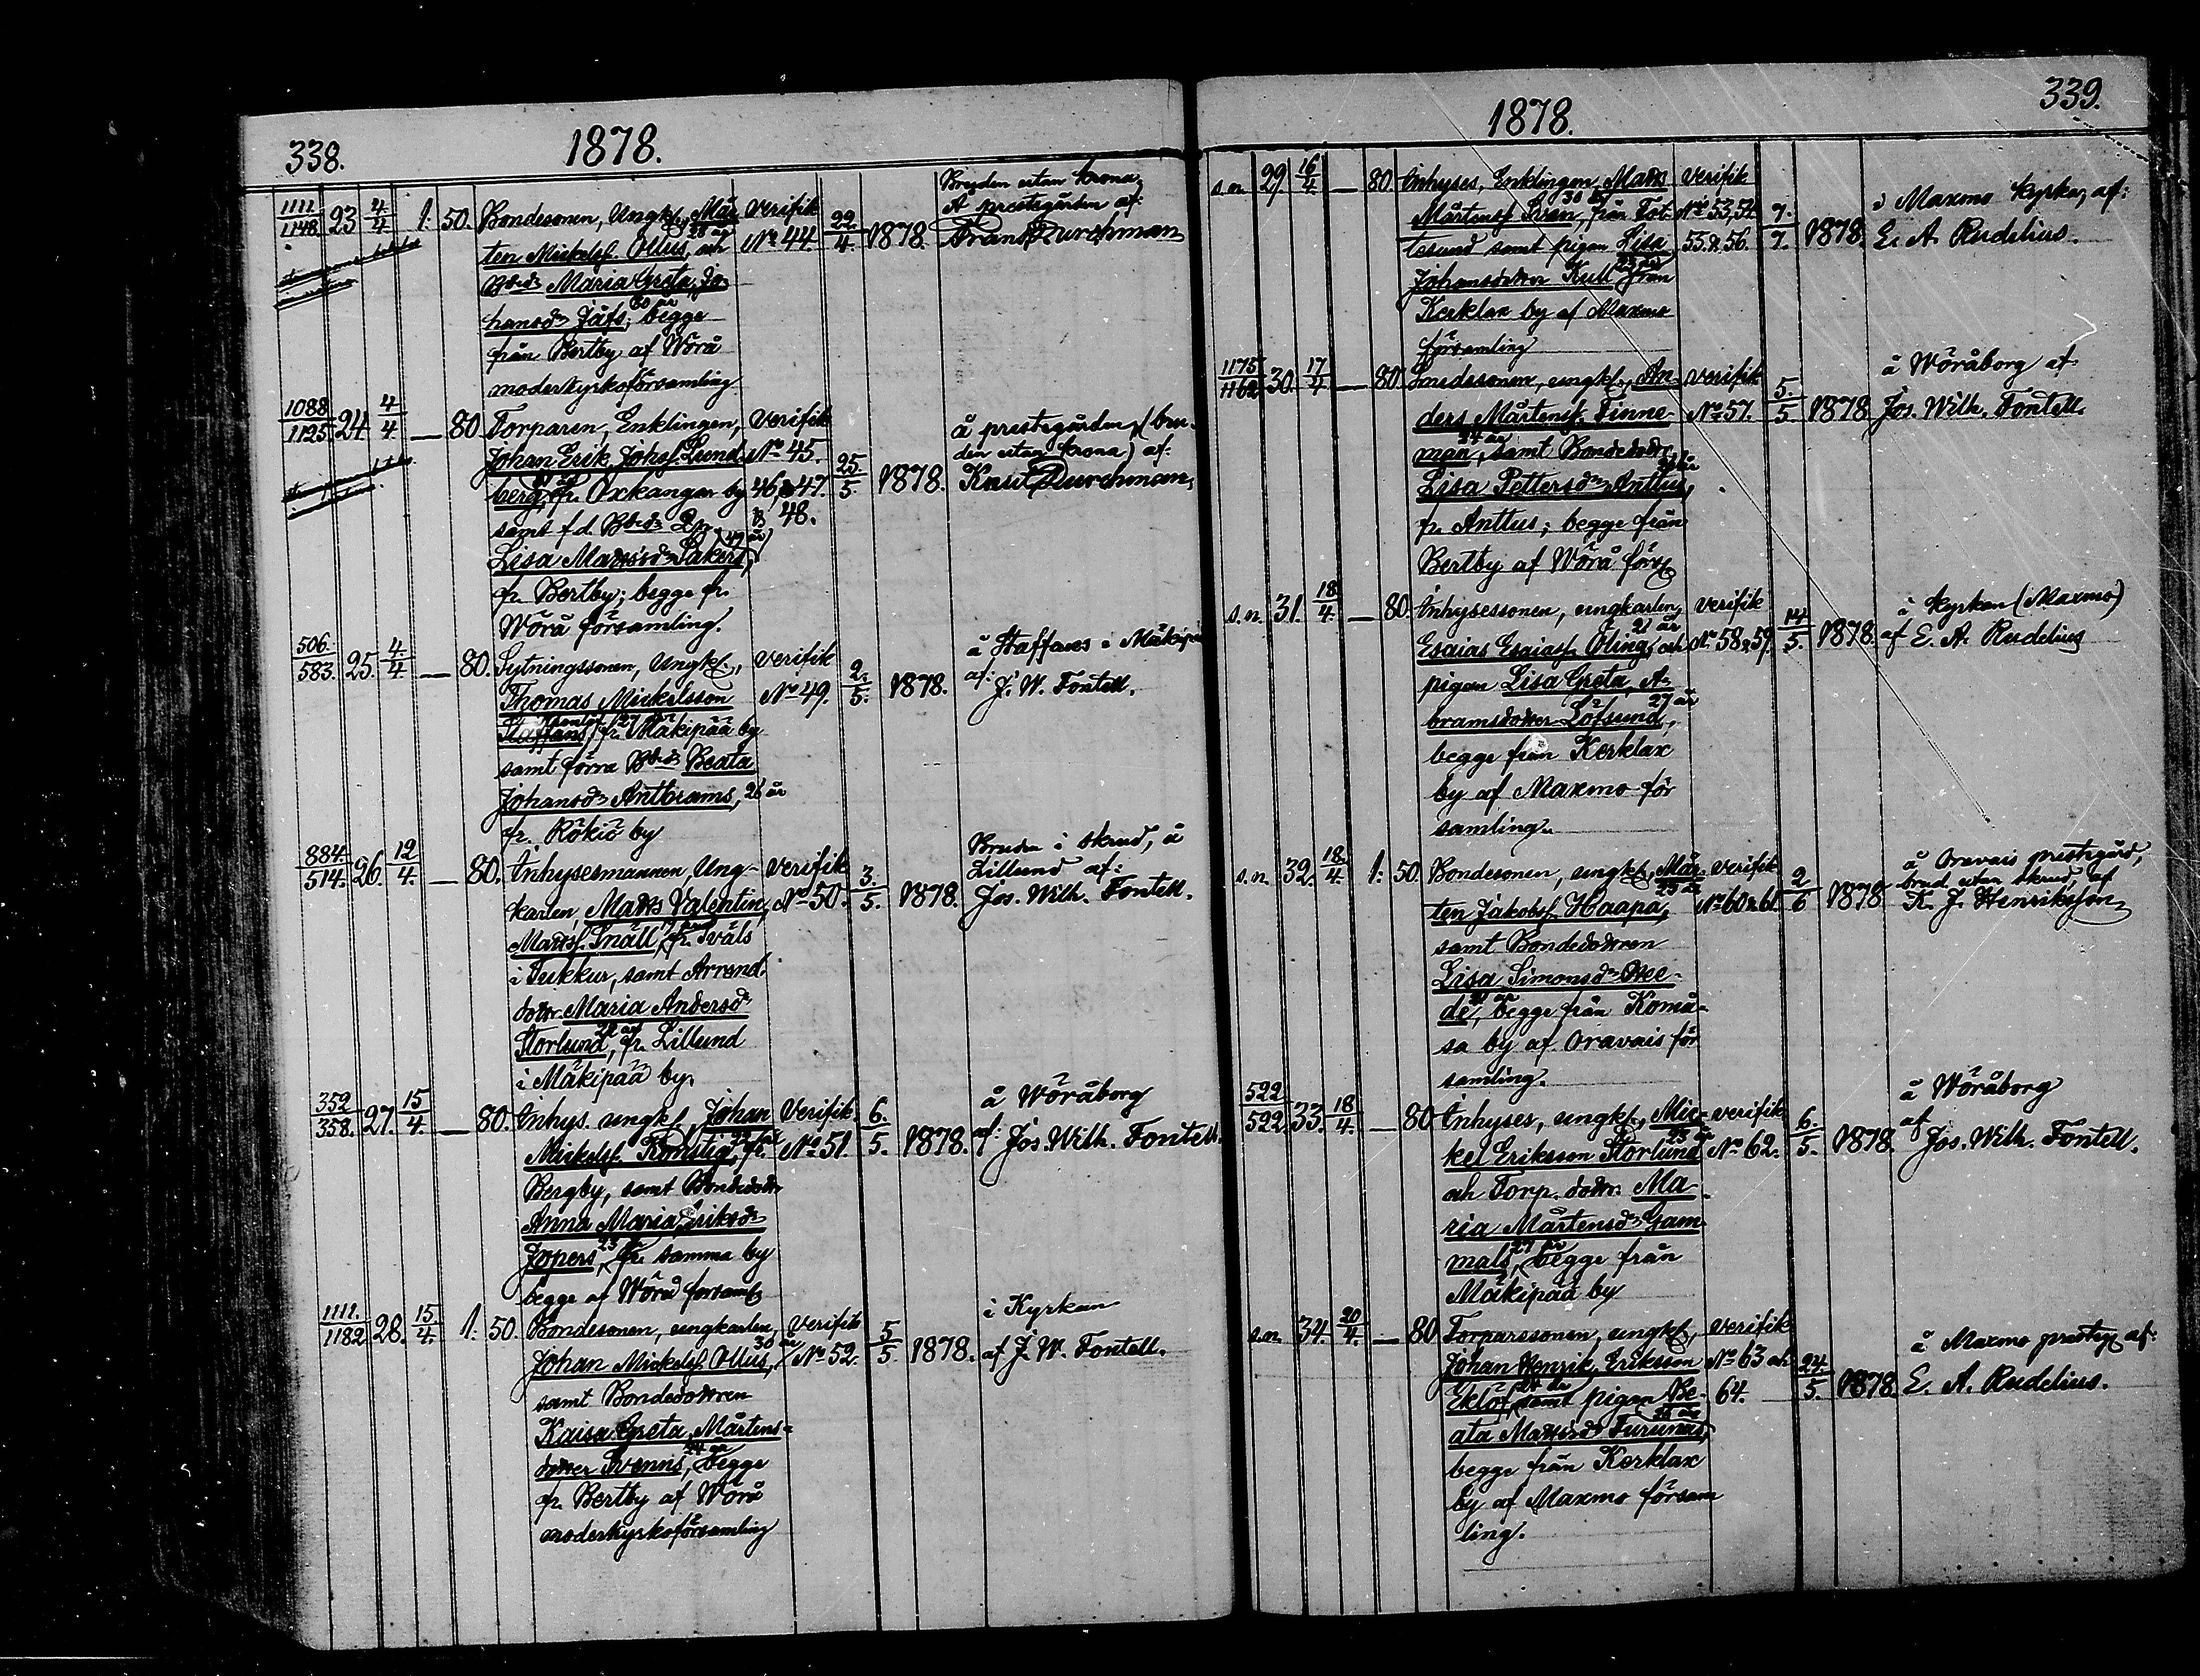 338.
1878.
1111.
1148.
23
4
4
1:
50.
Bondesonen, Ungk., Mår
28 år
ten Mickelss. Ollus, och
Maria Greta, Jo
hansdr Jäfs; begge
30 år
från Bertby af Wörå
moderkyrkoförsamling
verifik
No 44
22
4.
1878.
Bruden utan krona,
A prestegården af:
Frans Durchman
1088
1125
24
4
4
—
80.
Torparen, Enklingen,
Johan Erik Johss. Lund
berg, fr. Oxkangar by
samt f.d.
Lisa Mattsdr Säkers,
49 år
fr. Bertby; begge fr.
Wörå församling.
verifik
No 45.
46, 47.
48.
25
5.
1878.
å prestegården, (bru-
den utan krona) af:
Knut Durchman,
506.
583.
25.
4
4
—
80.
Sytningssonen, Ungk.,
Thomas Mickelsson
Staffans, fr. Mäkipää by
samt förra Beata
Johansdr Antbrams, 26 år
fr. Rökiö by
verifik
No 49.
2.
5.
1878.
å Staffans i Mäkipää
af:
J. W. Fontell.
884.
514.
26.
12
4.
—
80.
Inhysesmannen, Ung-
karlen, Matts Valentin
Mattss. Snäll, fr. Iväls
i Tukkur, samt Arrend.
dottr. Maria Andersdr
Storlund, fr. Lillund
i Mäkipää by.
verifik
No 50.
3.
5.
1878.
Bruden i skrud, å
Lillund af:
Jos. Wilh. Fontell.
352
358.
27.
15
4.
—
80.
Inhys. ungk., Johan
Mickelss. Konstig, fr.
Bergby, samt Bondedottr
Anna Maria Eriksdr
Jopers, fr. samma by
23 år
begge af Wörå församl
Verifik.
No 51.
6.
5.
1878.
å Wöråborg
af: Jos. Wilh. Fontell.
1111.
1182
28.
15
4.
1:
50.
Bondesonen, ungkarlen,
30 år
Johan Mickelss. Ollus,
samt Bondedottren
Kaisa Greta Mårtens-
24 år
dotter Svenns, begge
fr. Bertby af Wörå
moderkyrkoförsamling
verifik
No 52.
5
5.
1878.
i Kyrkan
af J. W. Fontell.
339.
1878.
s.n.
29
16
4.
—
80.
Inhyses, Enklingen, Matts
Mårtenss. Svan, från Tot
tesund samt pigan Lisa
Johansdotter Kull från
Kerklax by af Maxmo
församling
verifik
No 53, 54
55. & 56.
7.
7.
1878.
i Maxmo kyrka, af:
E. A. Rudelius.
1175
1162
30.
17
4.
—
80.
Smedssonen, ungk., An
ders Mårtenss. Finne-
24 år
man, samt Bondedottr.
Lisa Pettersdr Anttus,
fr. Anttus; begge från
Bertby af Wörå förs
verifik
No 57.
5.
5
1878.
å Wöråborg af
Jos. Wilh. Fontell.
s.n.
31.
18
4.
—
80.
Inhysessonen, ungkarlen,
21 år
Esaias Esaiass. Öling, och
pigan Lisa Greta, A-
27 år
bramsdotter Löfsund,
begge från Kerklax
by af Maxmo för
samling.
Verifik
No 58 & 59.
14
5.
1878.
i kyrkan (Maxmo)
af E. A. Rudelius
s.n.
32.
18.
4.
1:
50.
Bondesonen, ungk., Mår-
ten Jakobss. Haapa,
samt Bondedottren
Lisa Simonsdr Ove-
de, begge från Komå-
sa by af Oravais för
samling.
verifik
No 60 & 61.
2
6
1878
å Oravais prestgård,
brud utan skrud, af
K. J. Henriksson
522
522
33.
18
4.
—
80
Inhyses, ungk., Mic-
kel Eriksson Storlund
och Torp. dottr. Ma-
ria Mårtensdr Gam
mals, begge från
Mäkipää by
verifik
No 62.
6.
5.
1878.
å Wöråborg
af
Jos. Wilh. Fontell.
s.n.
34.
20
4.
—
80
Torparessonen, ungk.,
Johan Henrik Eriksson
24 år
Eklöf, samt pigan Be-
ata Mattsdr Furunäs,
begge från Kerklax
by af Maxmo försam
ling.
verifik
No 63 och
64.
24.
5.
1878.
å Maxmo prestg af:
E. A. Rudelius.